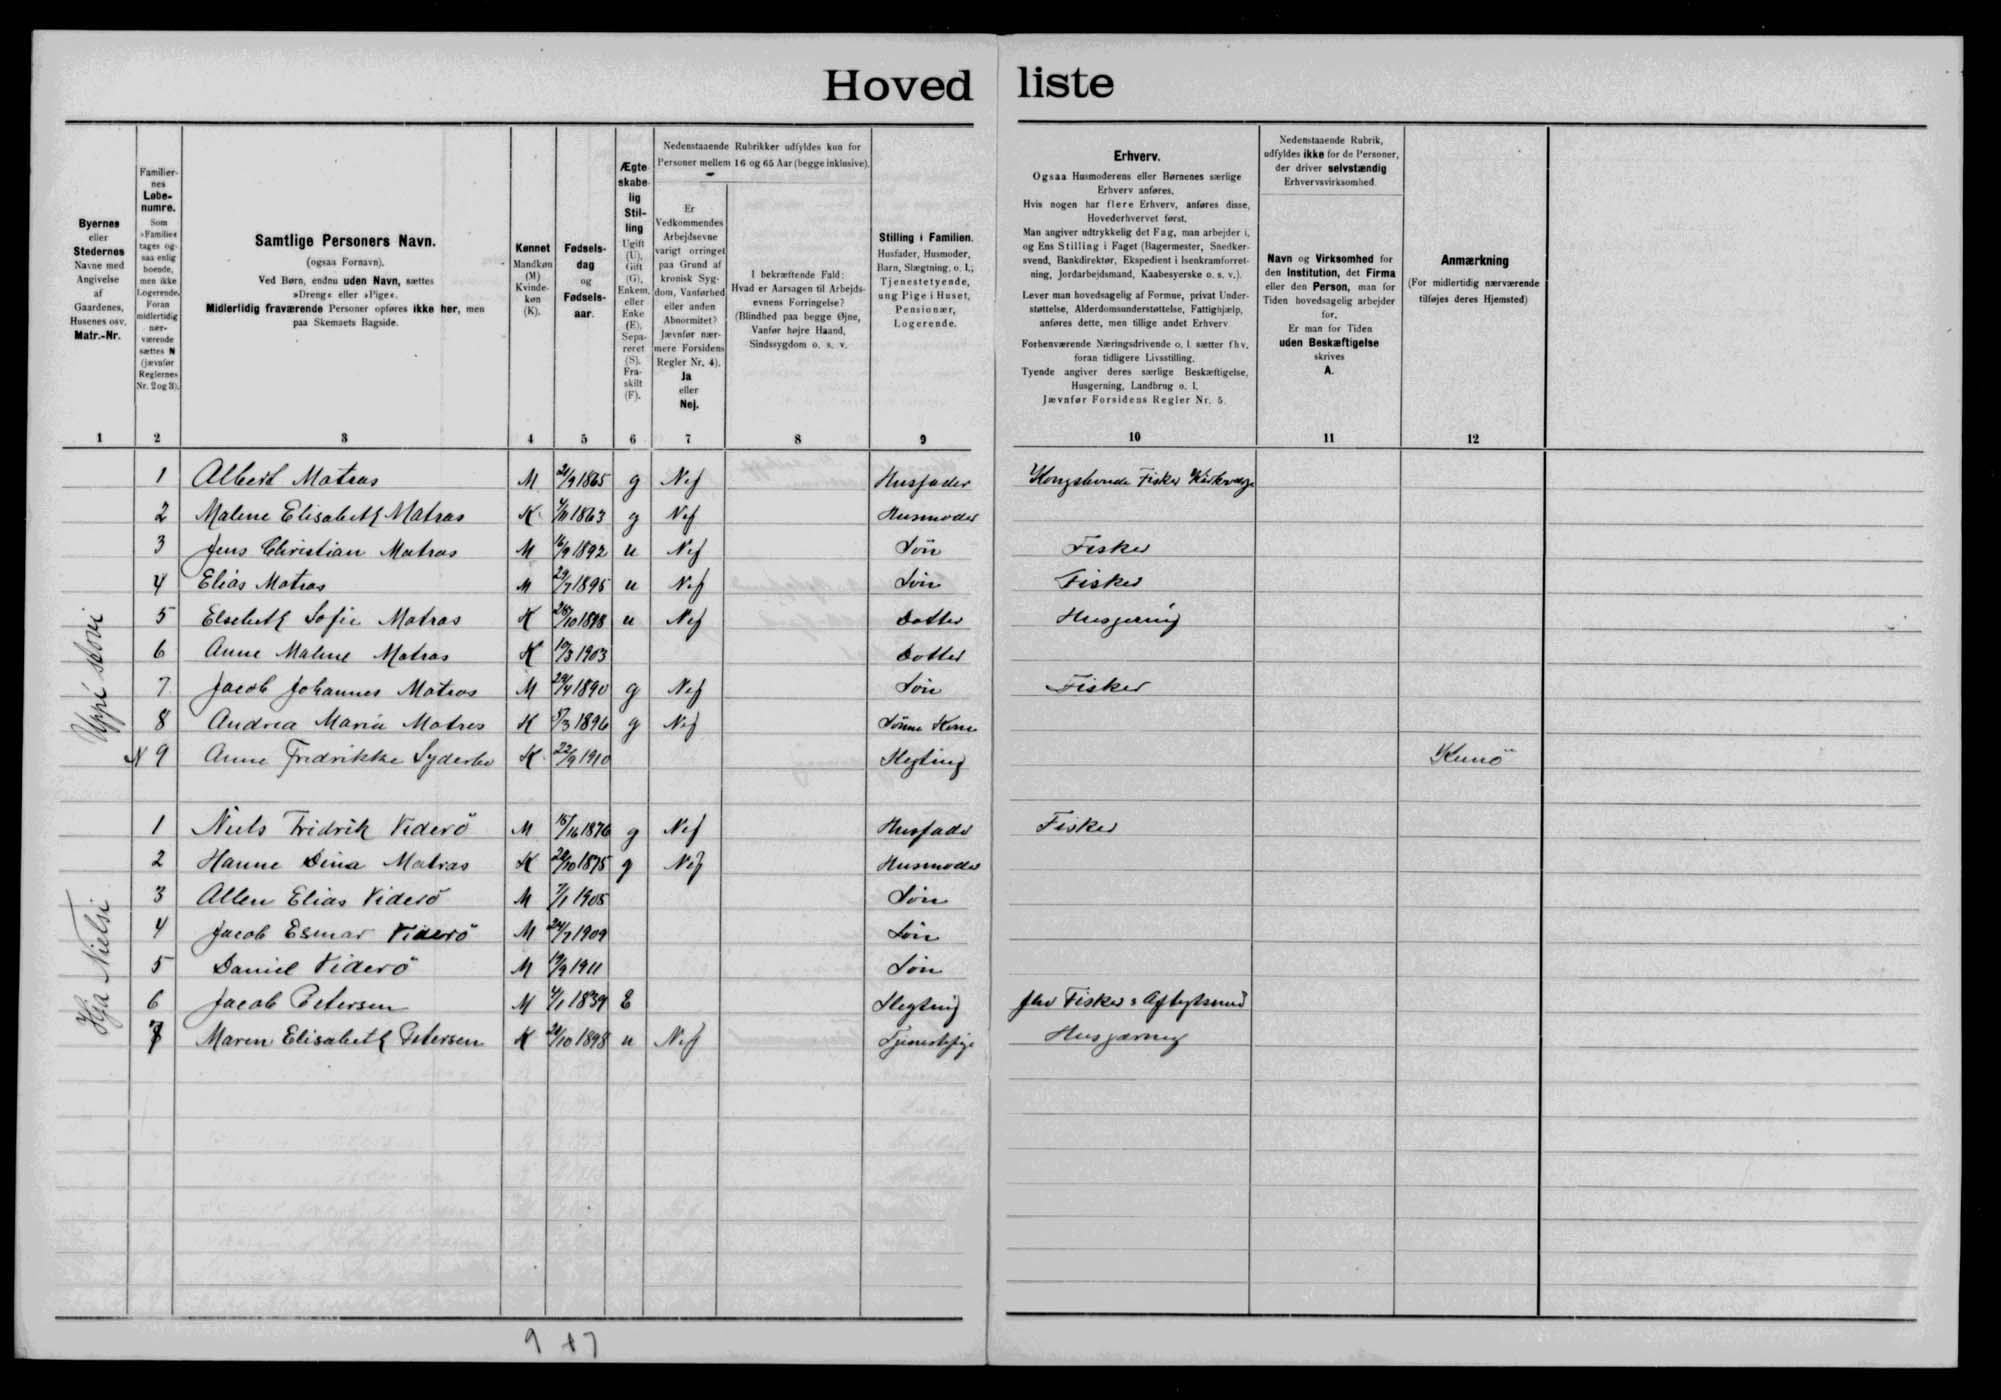 Hovedliste
Byernes eller Stedernes Navne med Angivelse af Gaardenes, Husenes osv. Matr.-Nr.
Familiernes Løbenumre. Som »Familie« tages ogsaa enlig boende, men ikke Logerende. Foran midlertidig nærværende sættes N (jævnfør Reglernes Nr. 2 og 3).
Samtlige Personers Navn.
(ogsaa Fornavn).
Ved Børn, endnu uden Navn, sættes
»Dreng« eller »Pige«.
Midlertidig fraværende Personer opføres ikke her, men
paa Skemaets Bagside.
Kønnet Mandkøn (M) Kvindekøn (K).
Fødselsdag og Fødselsaar.
Ægteskabelig Stilling Ugift (U), Gift (G), Enkem. eller Enke (E), Separeret (S), Fraskilt (F).
Nedenstaaende Rubrikker udfyldes kun for
Personer mellem 16 og 65 Aar (begge inklusive).
Er Vedkommendes Arbejdsevne varigt forringet paa Grund af kronisk Sygdom, Vanførhed eller anden Abnormitet? Jævnfør nærmere Forsidens Regler Nr. 4). Ja eller Nej.
I bekræftende Fald: Hvad er Aarsagen til Arbejdsevnens Forringelse? (Blindhed paa begge Øjne, Vanfør højre Haand, Sindssygdom o. s. v.
Stilling i Familien. Husfader, Husmoder, Barn, Slægtning, o. l.; Tjenestetyende, ung Pige i Huset, Pensionær, Logerende.
Erhverv.
Ogsaa Husmoderens eller Børnenes særlige
Erhverv anføres.
Hvis nogen har flere Erhverv, anføres disse,
Hovederhvervet først.
Man angiver udtrykkelig det Fag, man arbejder i,
og Ens Stilling i Faget (Bagermester, Snedkersvend, Bankdirektør, Ekspedient i Isenkramforretning, Jordarbejdsmand, Kaabesyerske o. s. v.).
Lever man hovedsagelig af Formue, privat Understøttelse, Alderdomsunderstøttelse, Fattighjælp,
anføres dette, men tillige andet Erhverv
Forhenværende Næringsdrivende o. l. sætter fhv.
foran tidligere Livsstilling.
Tyende angiver deres særlige Beskæftigelse,
Husgerning, Landbrug o. l.
Jævnfør Forsidens Regler Nr. 5.
Nedenstaaende Rubrik,
udfyldes ikke for de Personer,
der driver selvstændig
Erhvervsvirksomhed.
Navn og Virksomhed for
den Institution, det Firma
eller den Person, man for
Tiden hovedsagelig arbejder
for.
Er man for Tiden
uden Beskæftigelse
skrives
A.
Anmærkning
(For midlertidig nærværende
tilføjes deres Hjemsted)
1 2 3 4 5 6 7 8 9 10 11 12
Uppi
1 Albert Matras M 21/9 1865 g Nej Husfader Kongsbonde Fisker
2 Malene Elisabeth Matras K 4/11 1863 g Nej Husmoder
3 Jens Christian Matras M 16/9 1892 u Nej Søn Fisker
4 Elias Matras M 29/7 1895 u Nej Søn Fisker
5 Elsebeth Sofie Matras K 28/10 1898 u Nej Dotter Husgerning
6 Anne Malene Matras K 10/3 1903 Dotter
7 Jacob Johannes Matras M 29/4 1890 g Nej Søn Fisker
8 Andrea Maria Matras K 8/3 1896 g Nej Sönne Kone
N 9 Anne Fredrikke Syderbø K 22/9 1910 Slegting Kunö
Hja Nielsi
1 Niels Fridrik Viderö M 1876 g Nej Husfader Fisker
2 Hanne Dina Matras K 28/10 1875 g Nej Husmoder
3 Allen Elias Viderö M 7/1 1905 Søn
4 Jacob Esmar Viderö M 24/7 1909 Søn
5 Daniel Viderö M 19/9 1911 Søn
6 Jacob Petersen M 4/1 1839 E Slegting fhv Fisker
7 Maren Elisabeth Petersen K 24/10 1898 u Nej Tjenestepige Husgerning
9 + 7